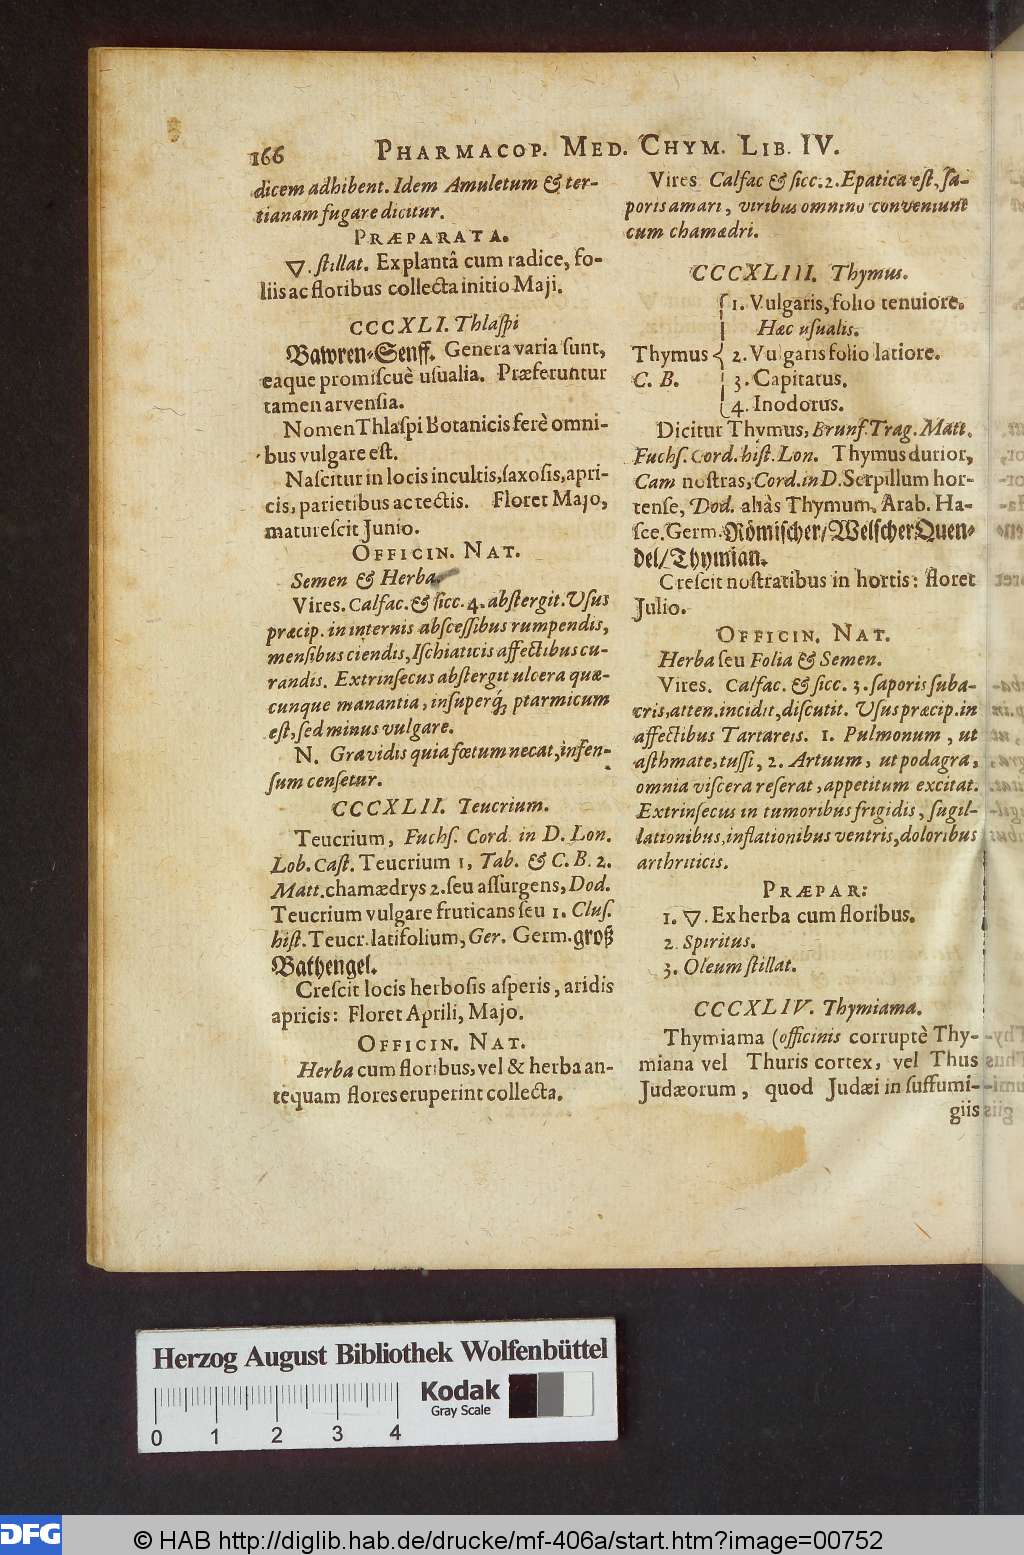 166 PHARMACOP. MED. CHYM. LIB. IV.
dicem adhibent. Idem Amuletum & ter-
tianam fugare dicitur.
PRÆPARATA.
▽. ſtillat. Ex plantâ cum radice, fo-
liis ac floribus collecta initio Maji.
CCCXLI. Thlaſpi
Bawren-Senff. Genera varia ſunt,
eaque promiſcuè uſualia. Præferuntur
tamen arvenſia.
Nomen Thlaſpi Botanicis ferè omni-
bus vulgare eſt.
Naſcitur in locis incultis, ſaxoſis, apri-
cis, parietibus ac tectis. Floret Majo,
matureſcit Junio.
OFFICIN. NAT.
Semen & Herba.
Vires. Calfac. & ſicc. 4. abſtergit. Uſus
præcip. in internis abſceſſibus rumpendis,
menſibus ciendis, Iſchiaticis affectibus cu-
randis. Extrinſecus abſtergit ulcera quæ-
cunque manantia, inſuperq́; ptarmicum
eſt, ſed minus vulgare.
N. Gravidis quia fœtum necat, infen-
ſum cenſetur.
CCCXLII. Teucrium.
Teucrium, Fuchſ. Cord. in D. Lon.
Lob. Caſt. Teucrium 1, Tab. & C. B. 2.
Matt. chamædrys 2. ſeu aſſurgens, Dod.
Teucrium vulgare fruticans ſeu 1. Cluſ.
hiſt. Teucr. latifolium, Ger. Germ. groß
Bathengel.
Creſcit locis herboſis aſperis, aridis
apricis: Floret Aprili, Majo.
OFFICIN. NAT.
Herba cum floribus, vel & herba an-
tequam flores eruperint collecta.
Vires Calfac & ſicc. 2. Epatica eſt, ſa-
poris amari, viribus omnino conveniunt
cum chamædri.
CCCXLIII. Thymus.
1. Vulgaris, folio tenuiore.
Hæc uſualis.
Thymus 2. Vulgaris folio latiore.
C. B. 3. Capitatus.
4. Inodorus.
Dicitur Thymus, Brunf. Trag. Matt.
Fuchſ. Cord. hiſt. Lon. Thymus durior,
Cam noſtras, Cord. in D. Serpillum hor-
tenſe, Dod. aliàs Thymum, Arab. Ha-
ſce. Germ. Römiſcher/Welſcher Quen-
del/Thymian.
Creſcit noſtratibus in hortis: floret
Julio.
OFFICIN. NAT.
Herba ſeu Folia & Semen.
Vires. Calfac. & ſicc. 3. ſaporis ſuba-
cris, atten. incidit, diſcutit. Uſus præcip. in
affectibus Tartareis. 1. Pulmonum, ut
aſthmate, tuſſi, 2. Artuum, ut podagra,
omnia viſcera reſerat, appetitum excitat.
Extrinſecus in tumoribus frigidis, ſugil-
lationibus, inflationibus ventris, doloribus
arthriticis.
PRÆPAR:
1. ▽. Ex herba cum floribus.
2. Spiritus.
3. Oleum ſtillat.
CCCXLIV. Thymiama.
Thymiama (officinis corruptè Thy-
miana vel Thuris cortex, vel Thus
Judæorum, quod Judæi in ſuffumi-
giis
Herzog August Bibliothek Wolfenbüttel
Kodak
Gray Scale
0 1 2 3 4
DFG
© HAB http://diglib.hab.de/drucke/mf-406a/start.htm?image=00752